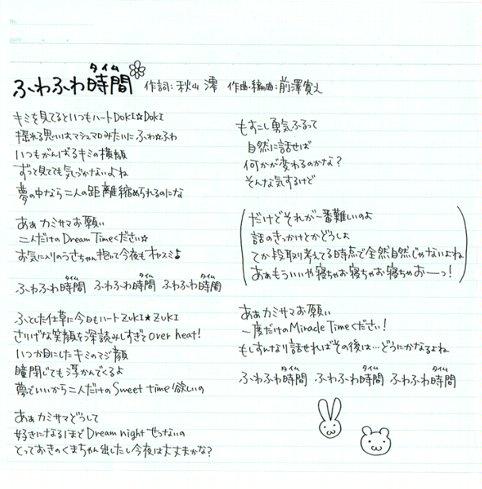 ふわふわ時間 作詞:秋山 澪 作曲・編曲:前澤寛之
タイム
キミを見てるといつもハートDOKI☆DOKI
揺れる思いはマシュマロみたいにふわ☆ふわ
いつもがんばるキミの横顔
ずっと見てても気づかないよね
夢の中なら二人の距離縮められるのにな
あぁ カミサマお願い
二人だけのDream Timeください☆
お気に入りのうさちゃん抱いて今夜もオヤスミ♪
ふわふわ時間 ふわふわ時間 ふわふわ時間
タイム タイム タイム
ふとした仕草に今日もハートZUKI☆ZUKI
さりげな笑顔を深読みしすぎてover heat!
いつか目にしたキミのマジ顔
瞳閉じても浮かんでくるよ
夢でいいから二人だけのSweet time欲しいの
あぁ カミサマどうして
好きになるほどDream nightせつないの
とっておきのくまちゃん出したし今夜は大丈夫かな?
もすこし勇気ふるって
自然に話せば
何かが変わるのかな?
そんな気するけど
(だけどそれが一番難しいのよ
話のきっかけとかどうしよ
てか段取り考えてる時点で全然自然じゃないよね
あぁもういいや寝ちゃお寝ちゃお寝ちゃおーっ!)
あぁ カミサマお願い
一度だけのMiracle Timeください!
もしすんなり話せればその後は…どうにかなるよね
ふわふわ時間 ふわふわ時間 ふわふわ時間
タイム タイム タイム